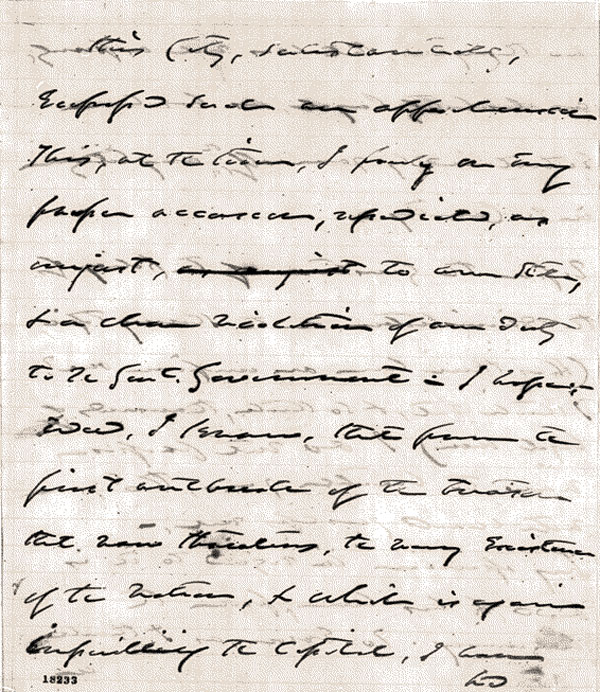 this City, substantially,
Expressed such an apprehension
This, at the time, I firmly on every
proper occasion, repelled, as
unjust, as unjust to our City,
& a clear violation of our Duty
to the Genl. Government - I hoped,
I know, that from the
first outbreak of the treason
that now threatens, the very Existence
of the Nation, & which is again
imperilling the Capital, I have
no
18233